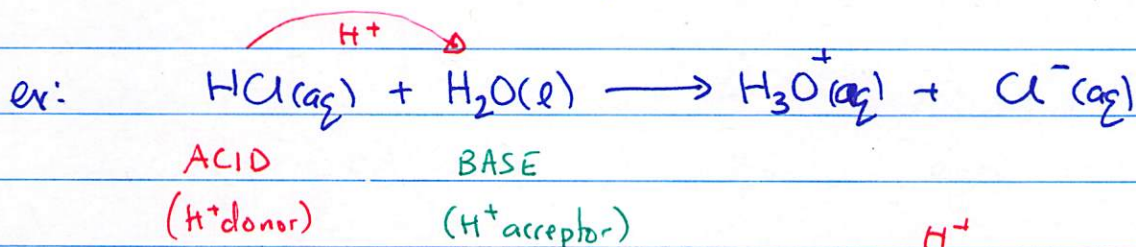 H⁺
ex: HCl(aq) + H₂O(l) ⟶ H₃O⁺(aq) + Cl⁻(aq)
ACID BASE
(H⁺ donor) (H⁺ acceptor)
H⁺